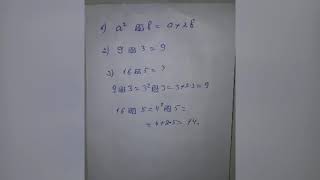 1) a² ⊞ b = a + 2b
2) 9 ⊞ 3 = 9
3) 16 ⊞ 5 = ?
9 ⊞ 3 = 3² ⊞ 3 = 3+2·3 = 9
16 ⊞ 5 = 4² ⊞ 5 =
= 4+2·5 = 14.